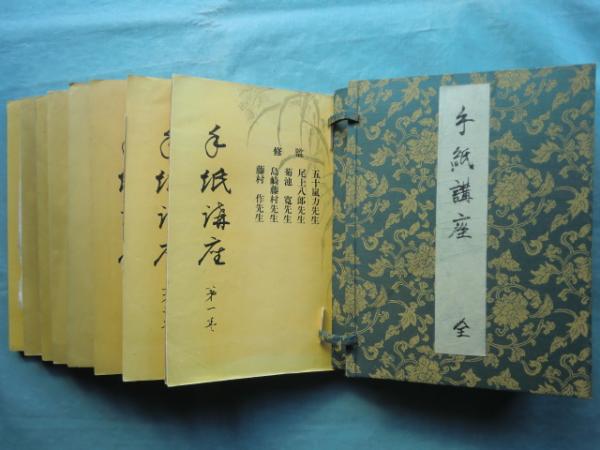 手紙講座 全
監修
五十嵐力先生
尾上八郎先生
菊池 寛先生
島崎藤村先生
藤村 作先生
手紙講座 第一巻
手紙講座